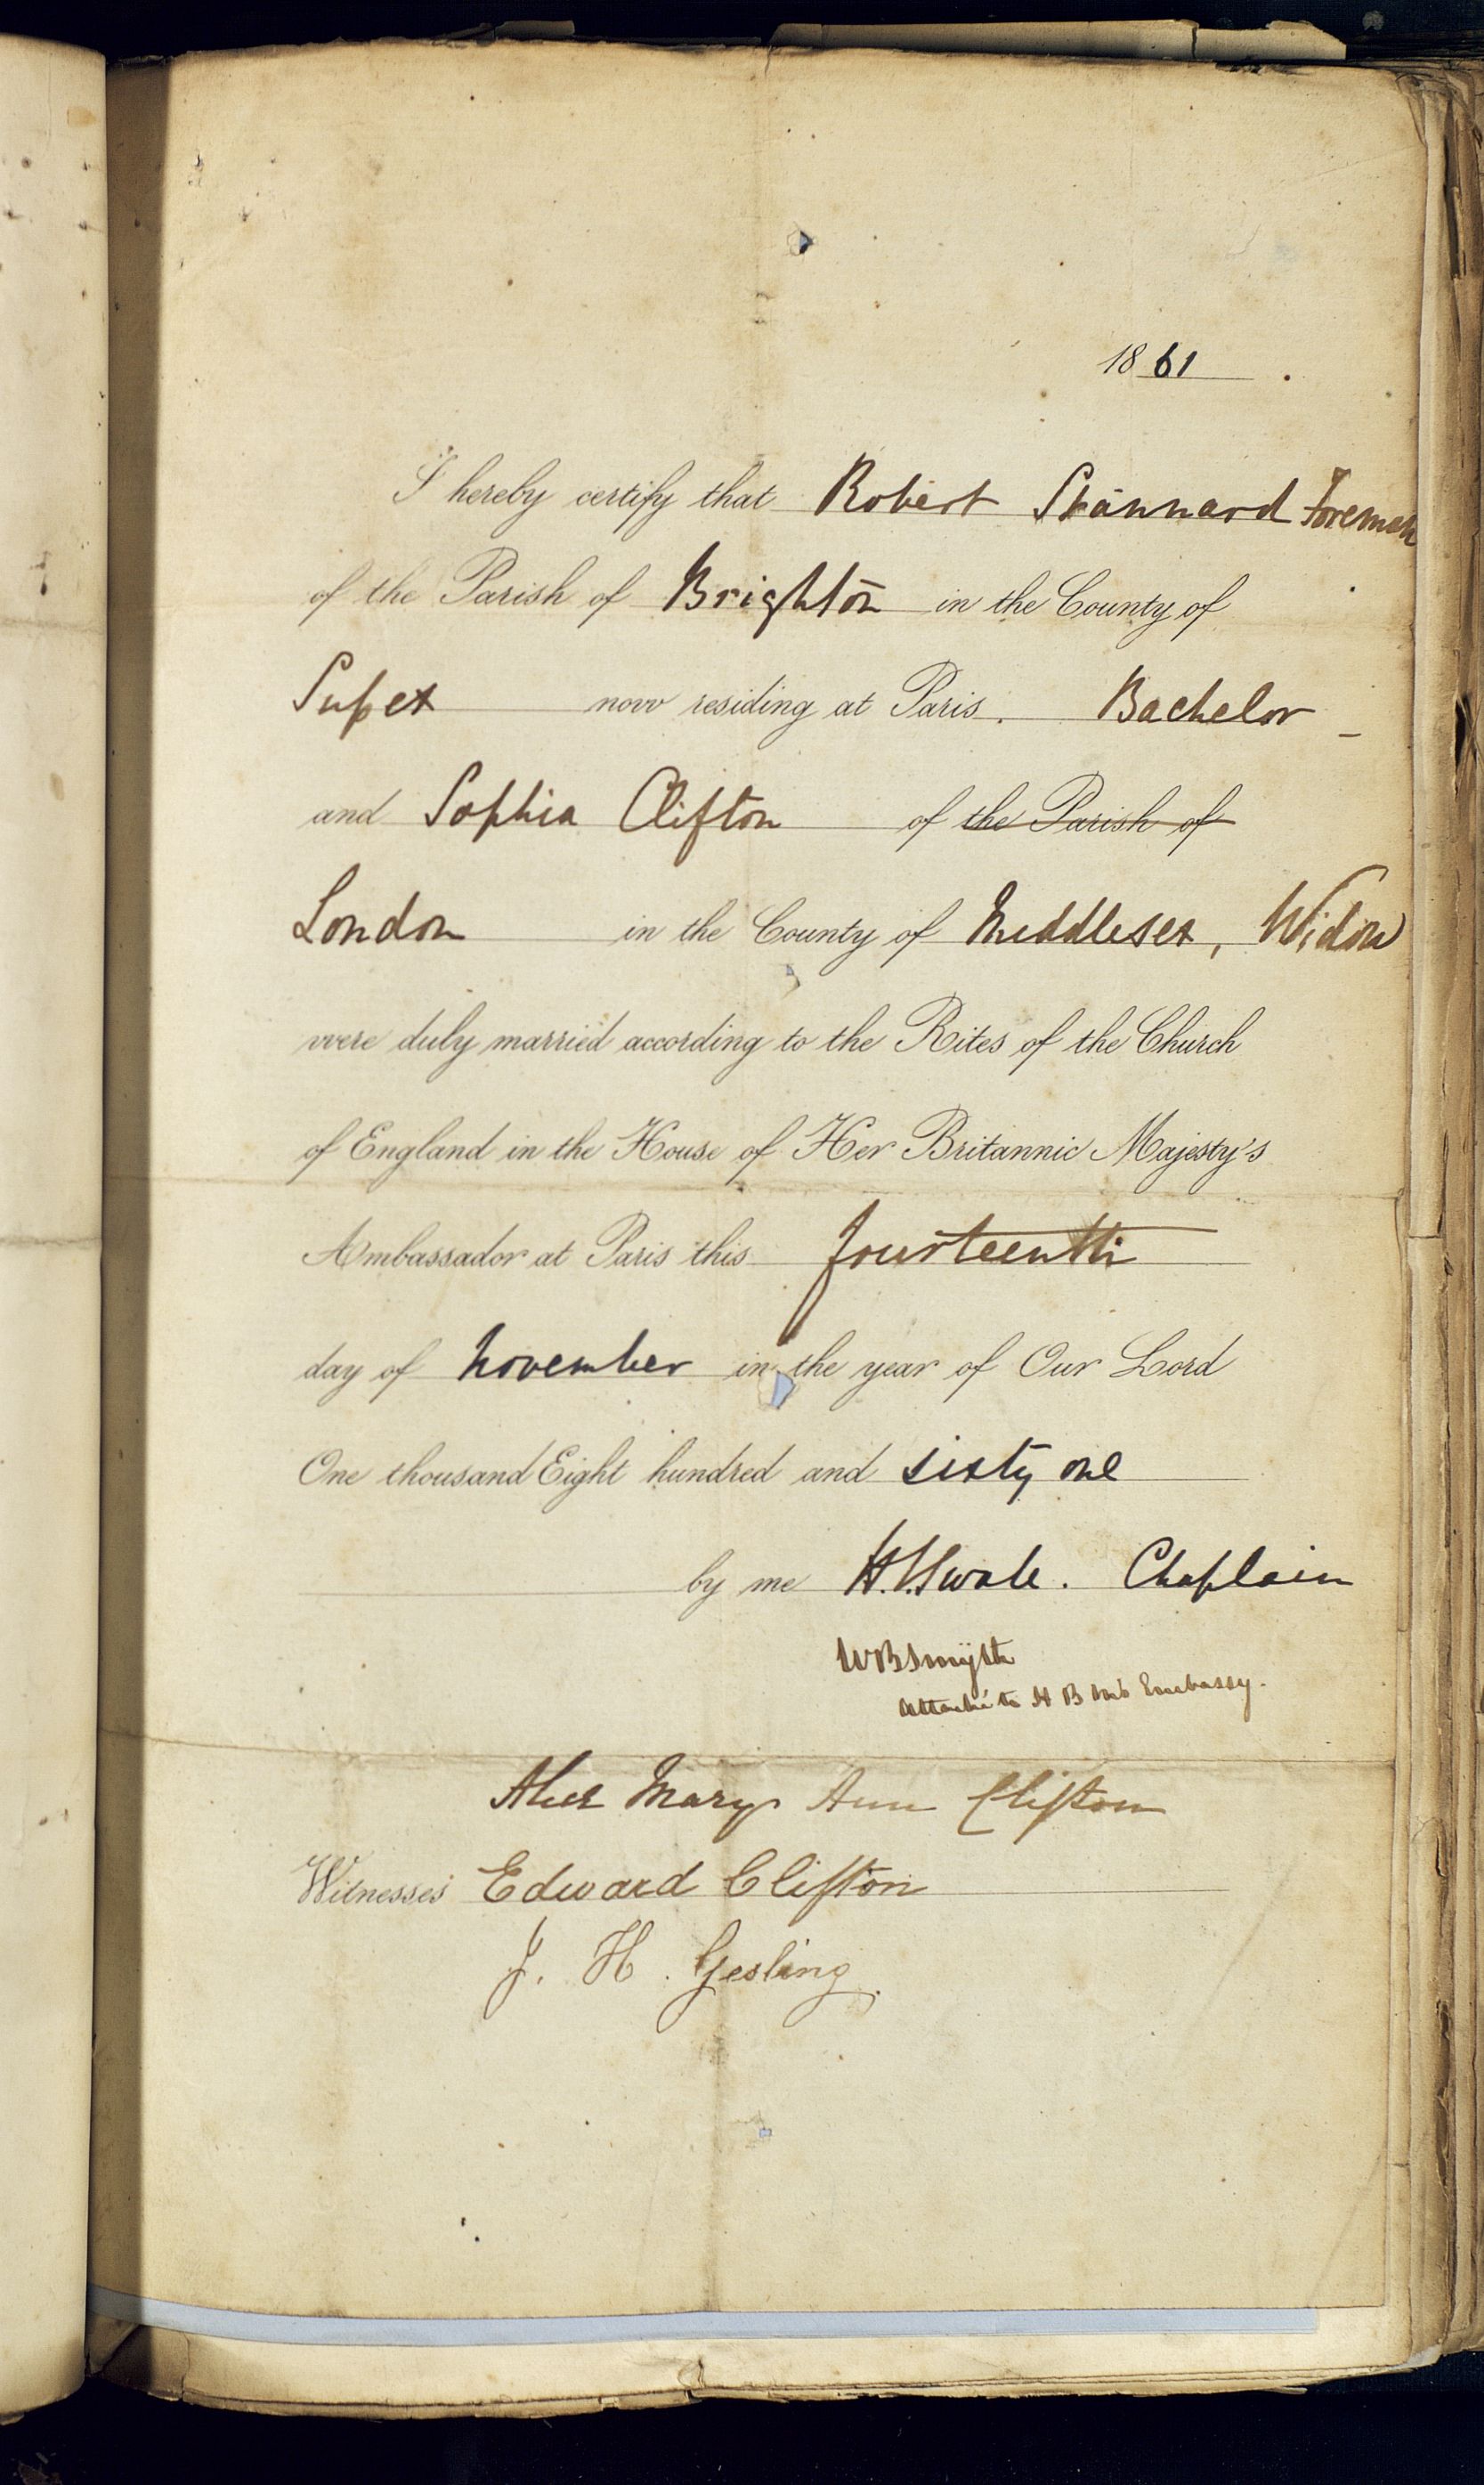 1861
I hereby certify that Robert Stannard Foreman
of the Parish of Brighton in the County of
Sussex now residing at Paris. Bachelor
and Sophia Clifton of the Parish of
London in the County of Middlesex, Widow
were duly married according to the Rites of the Church
of England in the House of Her Britannic Majesty's
Ambassador at Paris this fourteenth
day of November in the year of Our Lord
One thousand Eight hundred and sixty one
by me H. Swale. Chaplain
WBSmijth
Attaché to H B M's Embassy.
Mary Ann Clifton
Witnesses Edward Clifton
J. H. Gesling